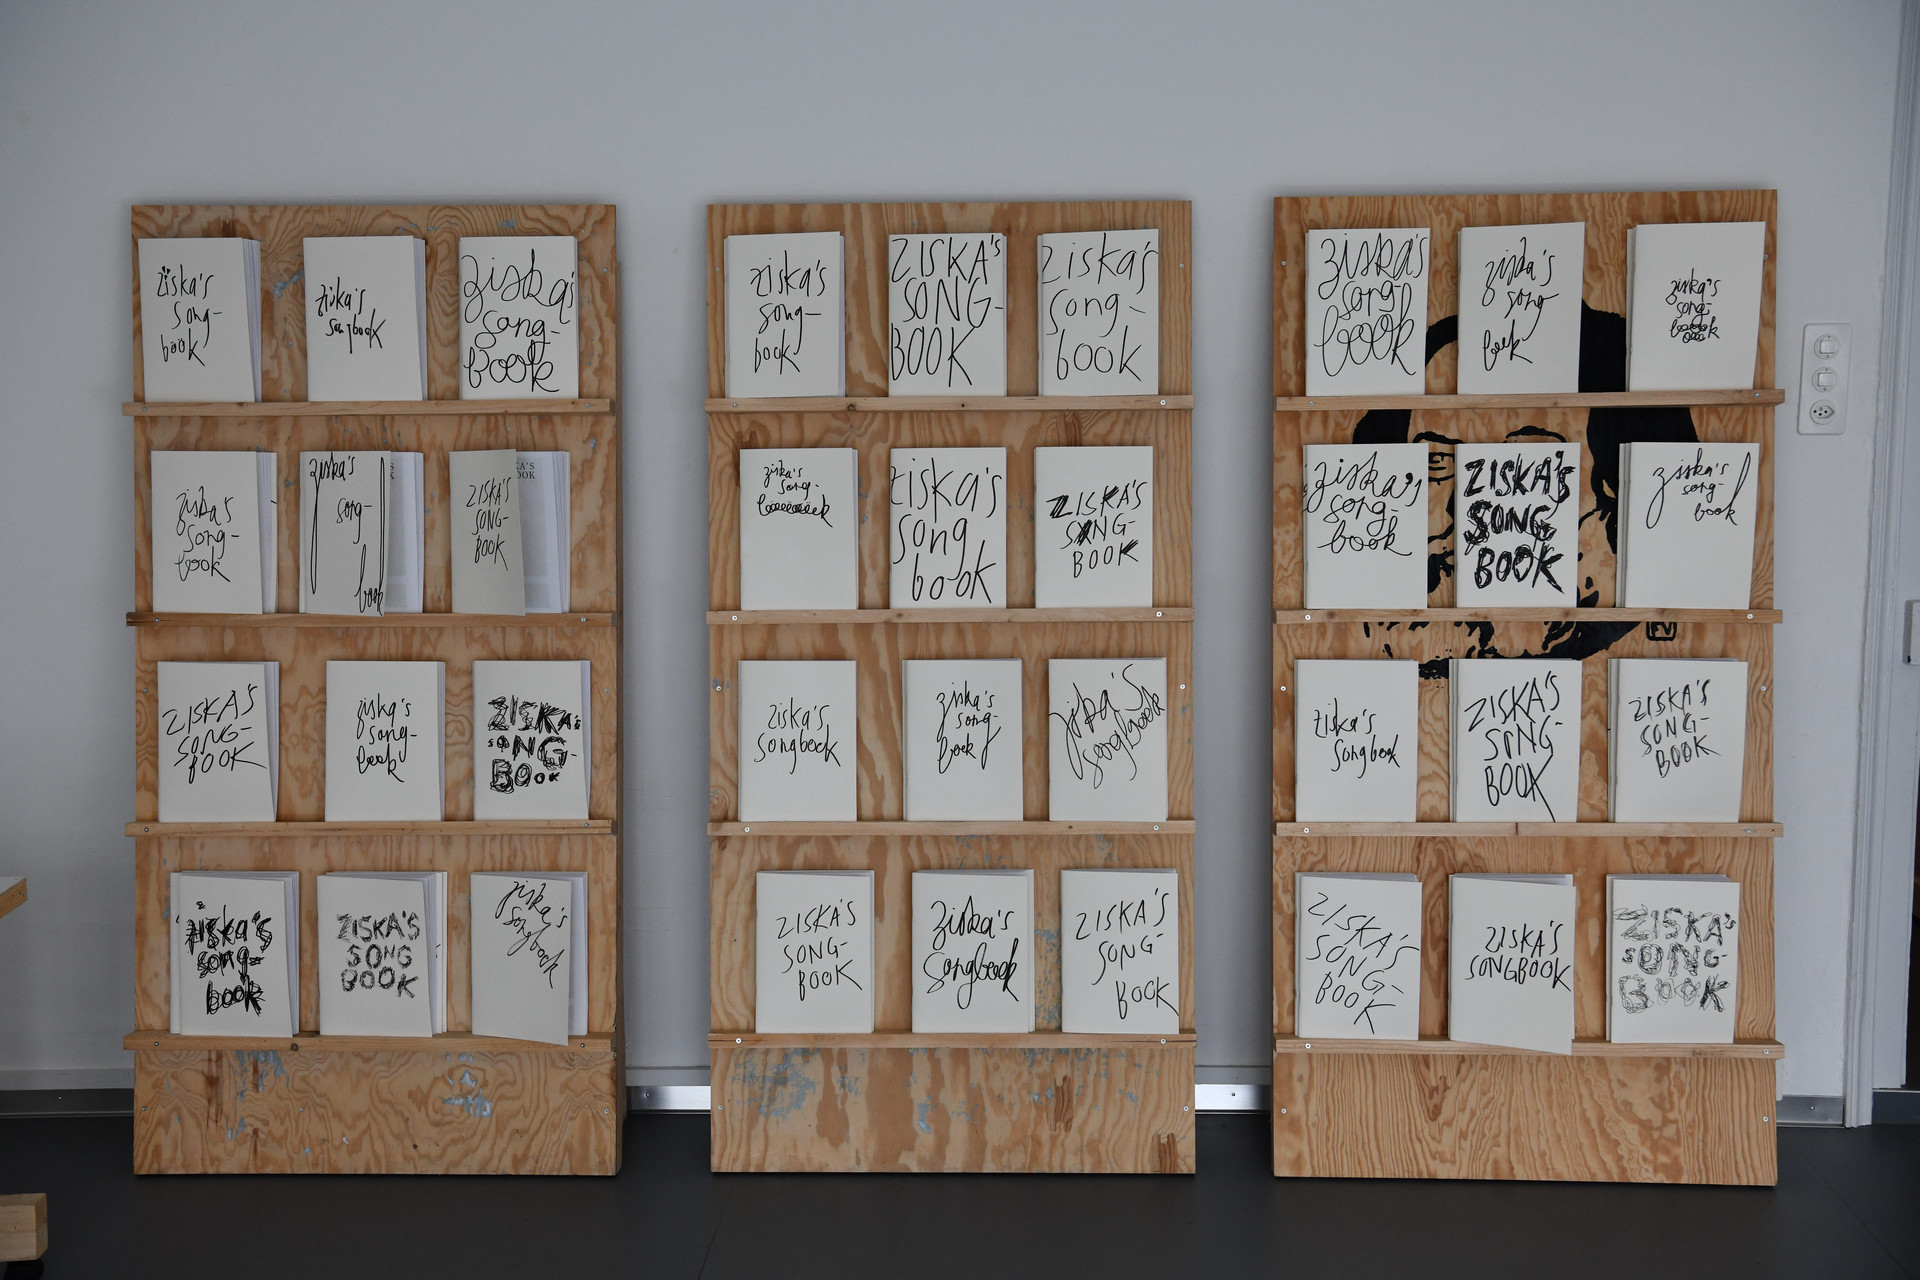 ziska's
song-
book
ziska's
songbook
ziska's
song-
book
ziska's
song-
book
ziska's
song-
book
ZISKA'S
SONG-
BOOK
KA'S
OOK
ZISKA'S
SONG-
BOOK
ziska's
song-
book
ZISKA's
SONG-
BOOK
ziska's
song-
book
ZISKA'S
SONG
BOOK
ziska's
songbook
ziska's
song-
book
ZISKA'S
SONG-
BOOK
ziska's
song-
book
ziska's
song-
ziska's
song
book
ZISKA'S
SONG-
BOOK
ziska's
songbook
ziska's
song-
book
ziska's
songbook
ZISKA'S
SONG-
BOOK
ziska's
songbook
ZISKA'S
SONG-
BOOK
ziska's
song-
book
ziska's
song
book
ziska's
song-
ziska's
song-
book
ZISKA'S
SONG
BOOK
ziska's
song-
book
FV
ziska's
songbook
ZISKA'S
SONG-
BOOK
ZISKA'S
SONG-
BOOK
ZISKA'S
SONG-
BOOK
ZISKA'S
SONGBOOK
ZISKA's
SONG-
BOOK